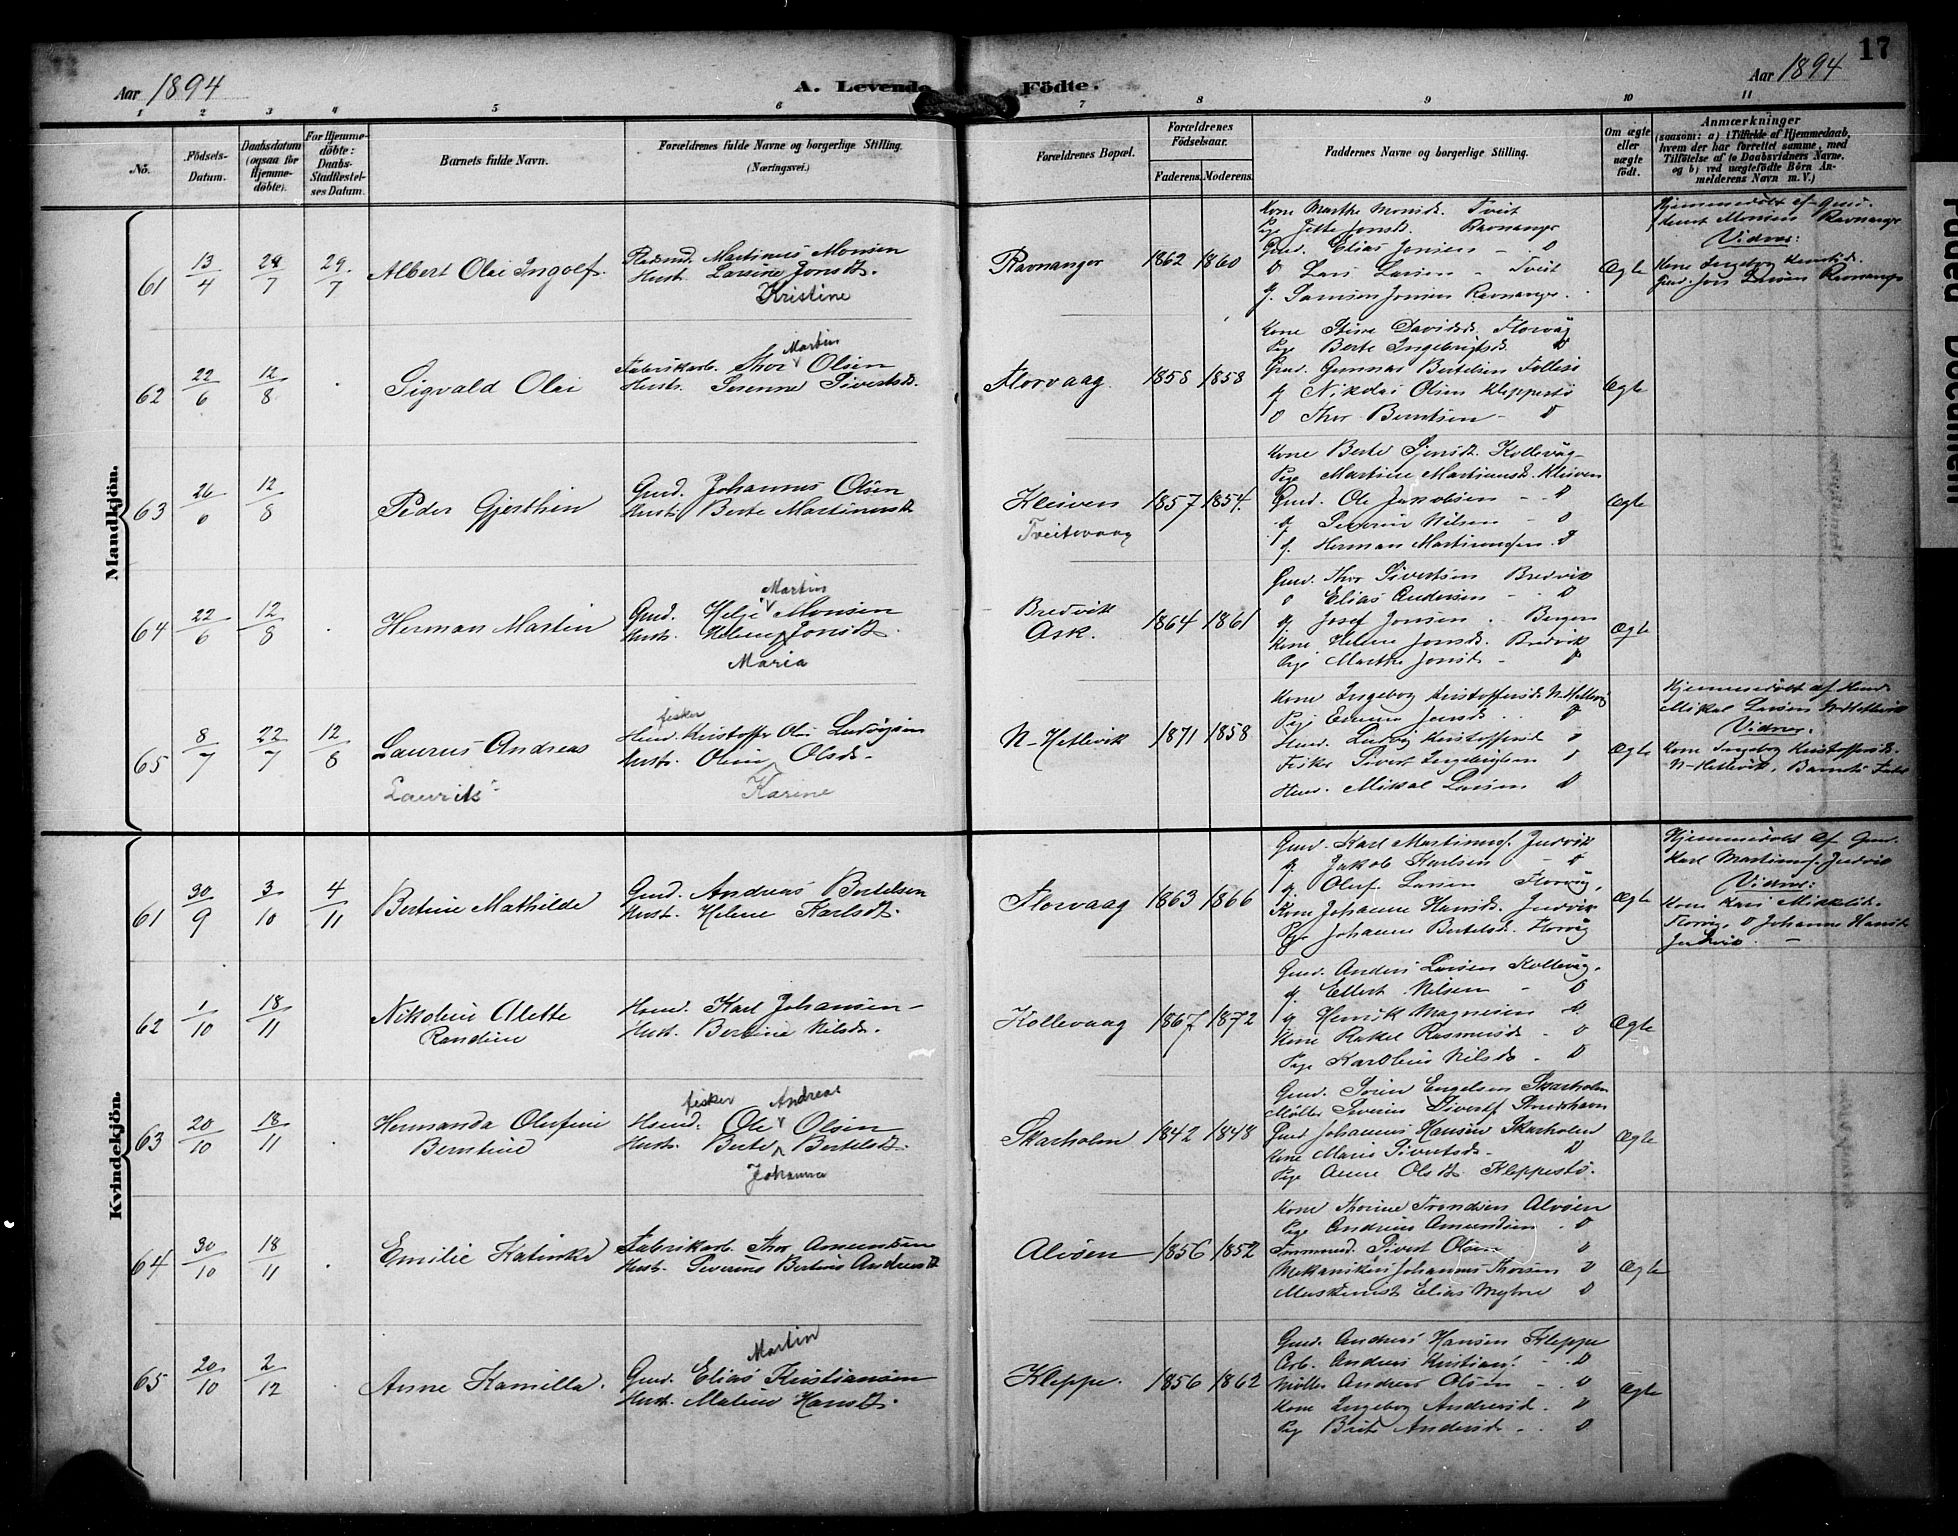 17
Aar 1894
A. Levende Födte.
Aar 1894
1 2 3 4 5 6 7 8 9 10 11
No.
Födsels-Datum.
Daabsdatum (ogsaa for Hjemme-döbte).
For Hjemme-döbte: Daabs-Stadfæstel-ses Datum.
Barnets fulde Navn.
Forældrenes fulde Navne og borgerlige Stilling.
(Næringsvei.)
Forældrenes Bopæl.
Forældrenes Födselsaar.
Faderens. Moderens.
Faddernes Navne og borgerlige Stilling.
Om ægte eller uægte födt.
Anmærkninger
(saasom: a) i Tilfælde af Hjemmedaab,
hvem der har forrettet samme, med
Tilföielse af to Daabsvidners Navne.
og b) ved uægtefödte Börn An-
melderens Navn m. V.)
Mandkjön.
61 13/4 29/7 Albert Olai Ingolf.
Martinus Monsen
Hust. Larsine Jonsd.
Kristine
Ravnanger 1862 1860
Kone Marthe Monsd. Tveit
Pige Jette Jonsd. Ravnanger
Gmd. Elias Jonsen - D
D Lars Larsen - Tveit
Samson Jonsen Ravnanger.
Ægte
Hjemmedöbt af
Monsen Ravnanger
Vidner:
Kone Ingeborg
Larsen Ravnanger
62 22/6 12/8 Sigvald Olai
Martin
Fabrikarb. Thor Olsen
Hustr. Sivertsd.
Florvaag. 1858 1858
Kone Stine Davidsd. Florvåg
Pige Berte Ingebrigtsd. D
Gmd. Gunnar Bertelsen Follesö
Nikolai Olsen Kleppestö
D Thor Berntsen - D
Ægte
63 26/6 12/8 Peder Gjerthin
Gmd. Johannes Olsen
Hustr. Berte Martinusd
Kleiven
Tveitevaag
1857 1854.
Kone Berte Kollevåg
Pige Martine Martinusd. Kleiven
Gmd. Ole Jakobsen - D
Severin Nilsen - D
Herman Martinussen. D
Ægte
64 22/6 12/8 Herman Martin
Martin
Gmd. Helje Monsen
Hustr. Helene Jonsd.
Maria
Bredvik
Ask.
1864 1861
Gmd. Thor Sivertsen Bredvik
D Elias Andersen - D
Josef Jonsen. Bergen
Kone Helene Jonsd. Bredvik
Pige Marthe Jonsd - D
Ægte
65 8/7 22/7 12/8 Laurus Andreas
Laurits
fisker
Kristoffer Ole Ludvigsen
Hustr. Oline Olsd.
Karine
N-Hetlevik 1871 1858
Kone Ingeborg Kristoffersd. N-Hetlevig
Pige Emma Jensd. D
Ludvig Kristoffersen D
Fisker Sivert Ingebrigtsen D
Mikal Larsen D
Ægte
Hjemmedöbt af
Mikal Larsen N-Hetlevik
Vidner.
Kone Ingeborg Kristoffersd.
N-Hetlevik, Barnets Fader
Kvindekjön.
61 30/9 3/10 4/11 Bertine Mathilde
Gmd. Andreas Bertelsen
Hust. Helene Karlsd.
Florvaag 1863 1866
Gmd. Karl Martinus. Juvik
Jakob Karlsen - D
Oluf Larsen Florvåg,
Kone Johanne Hansd.
Pige Johanne Bertelsd. Florvåg
Ægte
Hjemmedöbt af Gmd.
Karl Martinus.
Vidner:
Kone Kari Mikkelsd.
Florvåg, D Johanne Hansd.
62 1/10 18/11 Nikoline Alette
Randine
Karl Johansen -
Hust. Bertine Nilsd.
Kollevaag 1867 1872
Gmd. Anders Larsen Kollevåg.
Ellert Nilsen - D
Henrik Magnesen D
Kone Rakel Rasmusd. - D
Pige Karoline Nilsd. - D
Ægte
63 20/10 18/11 Hermanda Olufine
Berntine
fisker Andreas
Ole Olsen
Hustr. Berte Bertelsd.
Johanna
Skarholm 1842 1848
Gmd. Sören Engelsen Skarholm
Möller Severin
Gmd Johannes Hansen Skarholm
Kone Maria Sivertsd. D
Pige Anne Olsd. Kleppestö.
Ægte
64 30/10 18/11 Emilie Katinka
Fabrikarb. Thor Amundsen
Hust. Severine Bertine Andreasd.
Alvöen 1856 1852
Kone Thorine Alvöen
Pige Andrine Amundsen. D
Sivert Olsen D
Mekanikus Johannes Thorsen D
Maskinist Elias D
Ægte
65 20/10 2/12 Anne Kamilla.
Martin
Gmd. Elias Kristiansen
Hust. Maline Hansd.
Kleppe. 1856 1862
Gmd. Andreas Hansen Kleppe
Arb. Andreas Kristians. - D
Möller Andreas Olsen - D
Kone Ingeborg Andreasd. D
Pige Brite Andersd. D
Ægte